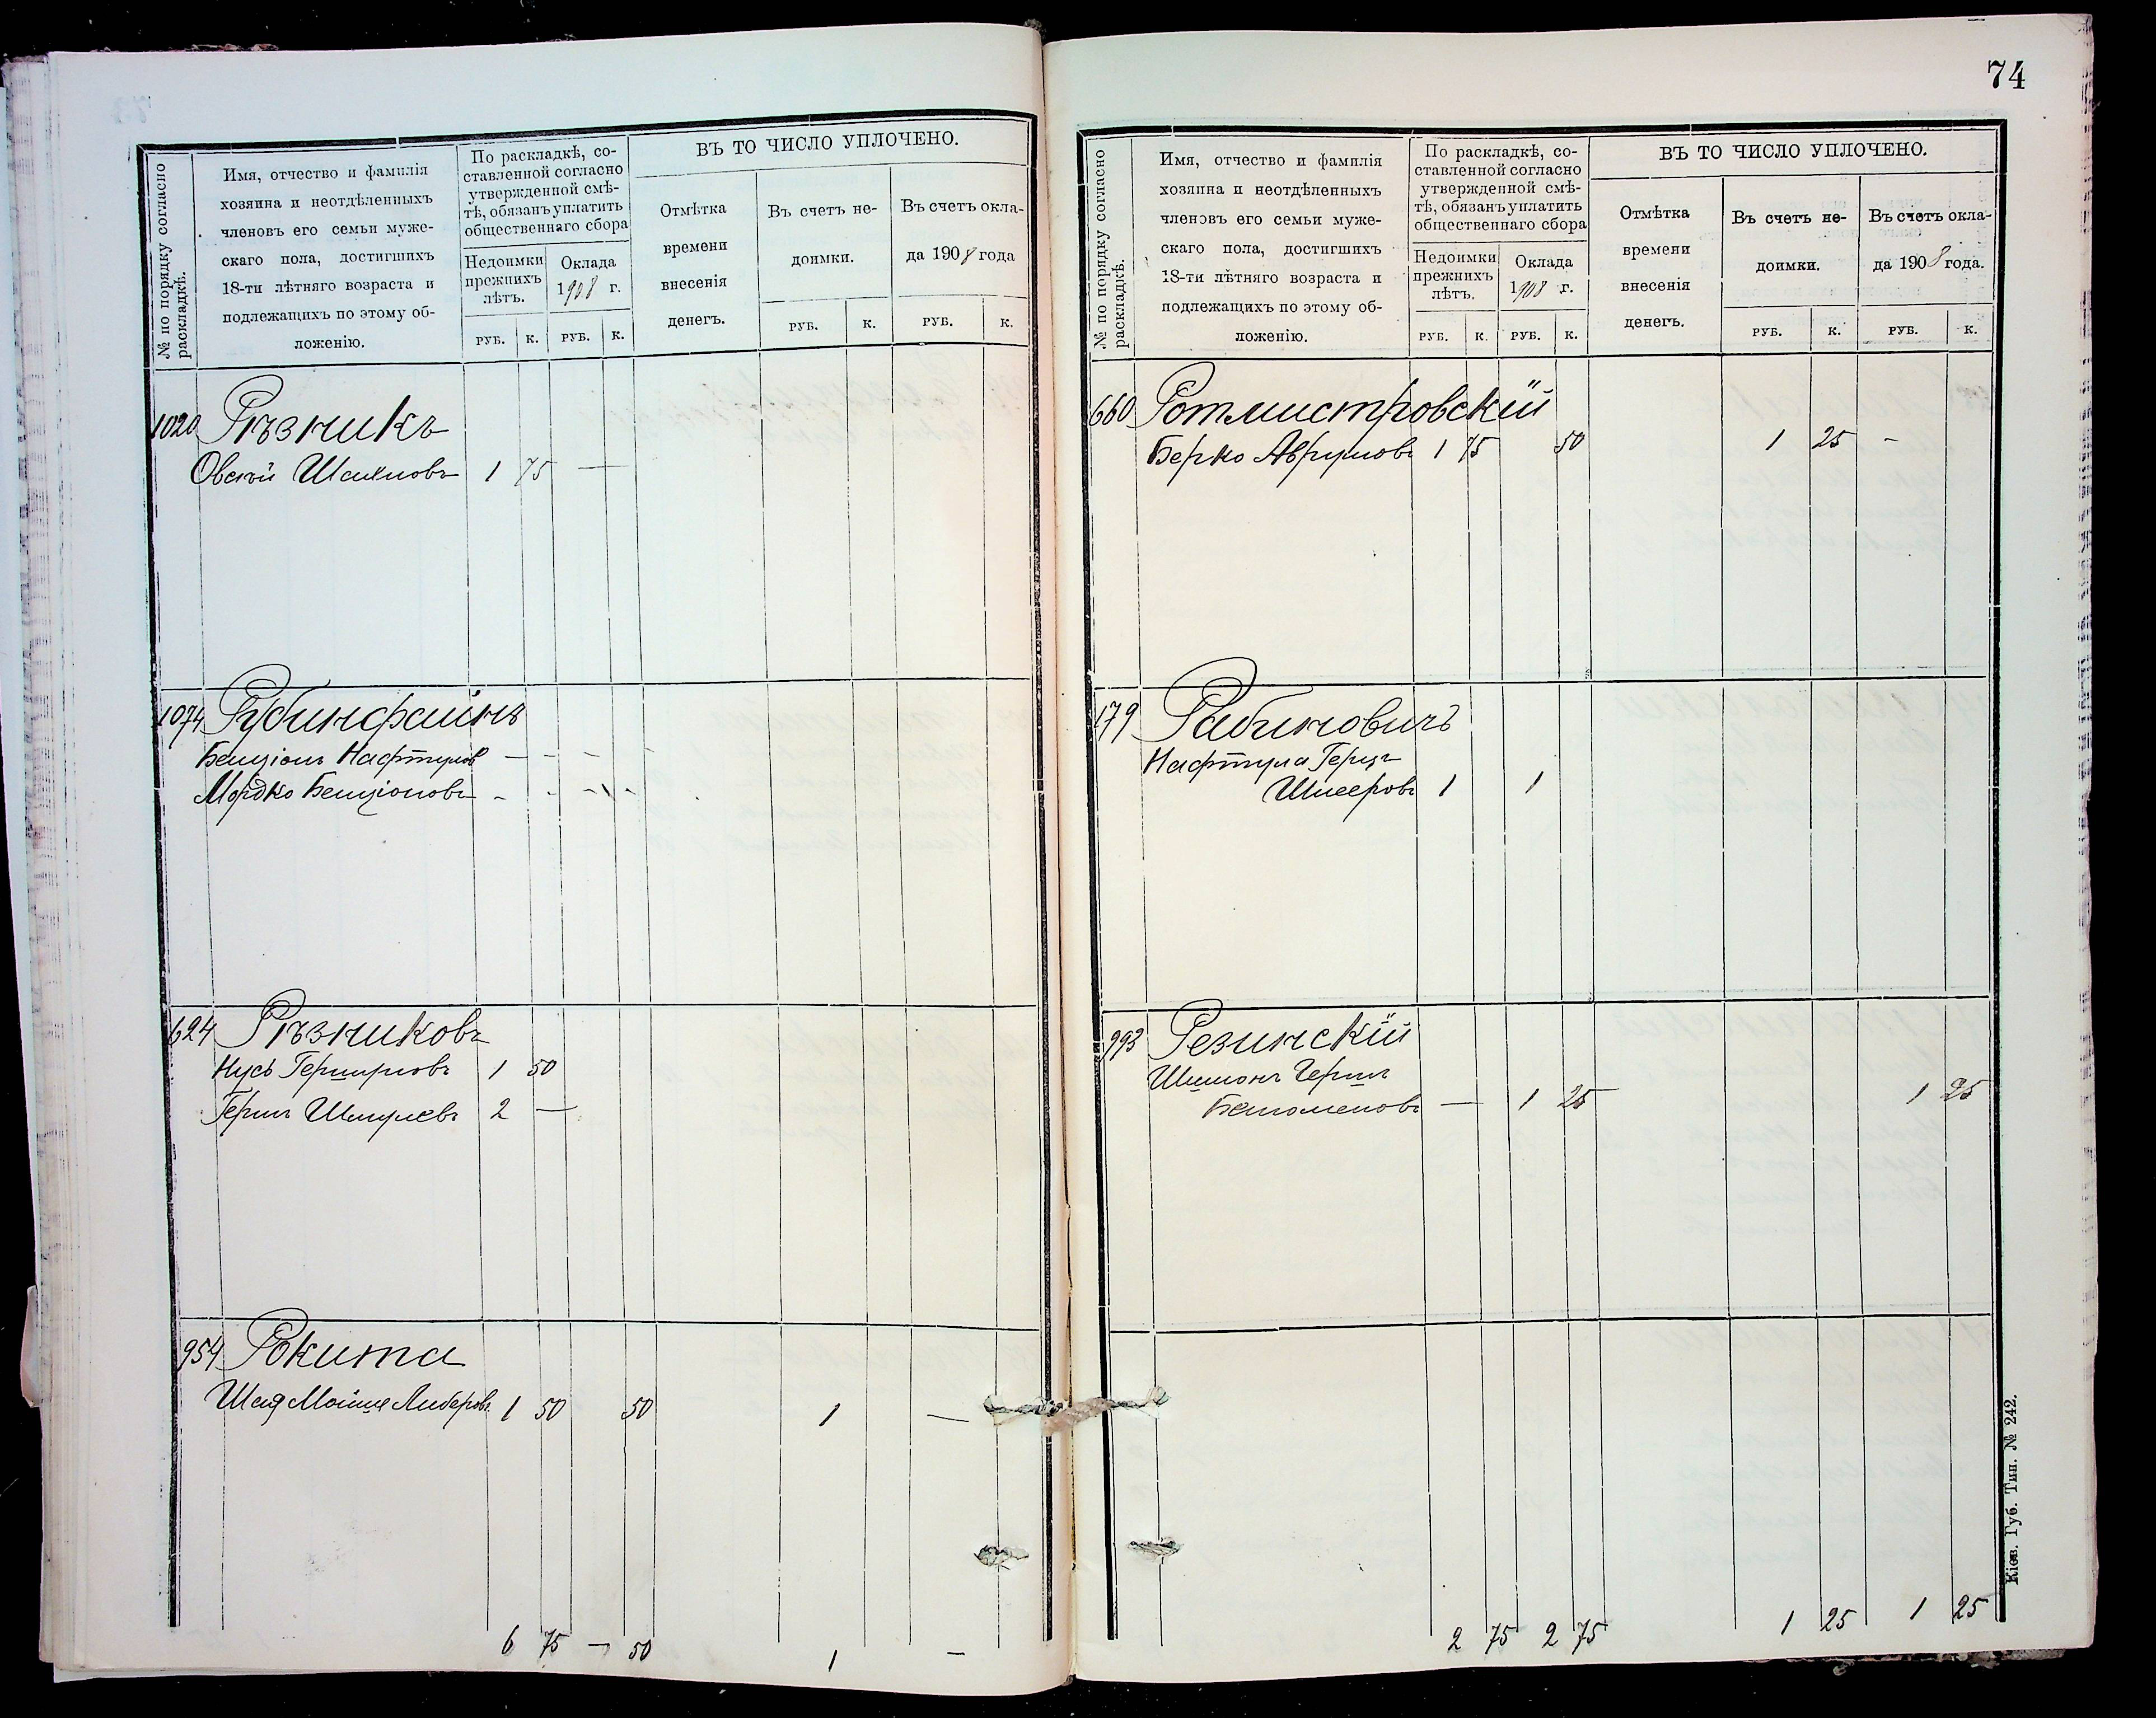 74
№ по порядку согласно раскладкѣ.
Имя, отчество и фамилія
хозяина и неотдѣленныхъ
членовъ его семьи муже-
скаго пола, достигшихъ
18-ти лѣтняго возраста и
подлежащихъ по этому об-
ложенію.
По раскладкѣ, со-
ставленной согласно
утвержденной смѣ-
тѣ, обязанъ уплатить
общественнаго сбора
Недоимки
прежнихъ
лѣтъ.
Оклада
1908 г.
РУБ. К. РУБ. К.
ВЪ ТО ЧИСЛО УПЛОЧЕНО.
Отмѣтка
времени
внесенія
денегъ.
Въ счетъ не-
доимки.
Въ счетъ окла-
да 1908 года
РУБ. К. РУБ. К.
1020 Рѣзникъ
Овсѣй 1 75 —
1074 Рубинфайнъ
Бенціонъ Нафтулов — - -
Мордко Бенціоновъ - - - -
624 Рѣзниковъ
Нусь 1 50
Герш Шмулевъ 2 —
954 Рокита
Шая Мойше Либеровъ 1 50 50 1 —
6 75 — 50 1 —
№ по порядку согласно раскладкѣ.
Имя, отчество и фамилія
хозяина и неотдѣленныхъ
членовъ его семьи муже-
скаго пола, достигшихъ
18-ти лѣтняго возраста и
подлежащихъ по этому об-
ложенію.
По раскладкѣ, со-
ставленной согласно
утвержденной смѣ-
тѣ, обязанъ уплатить
общественнаго сбора
Недоимки
прежнихъ
лѣтъ.
Оклада
1908 г.
РУБ. К. РУБ. К.
ВЪ ТО ЧИСЛО УПЛОЧЕНО.
Отмѣтка
времени
внесенія
денегъ.
Въ счетъ не-
доимки.
Въ счетъ окла-
да 1908 года.
РУБ. К. РУБ. К.
660 Ротмистровскій
Берко Аврумовъ 1 75 50 1 25 -
179 Рабиновичъ
Нафтула Герцъ
Шмееровъ 1 1
993 Резинскій
Шимонъ Герш
— 1 25 1 25
2 75 2 75 1 25 1 25
Кіев. Губ. Тип. № 242.